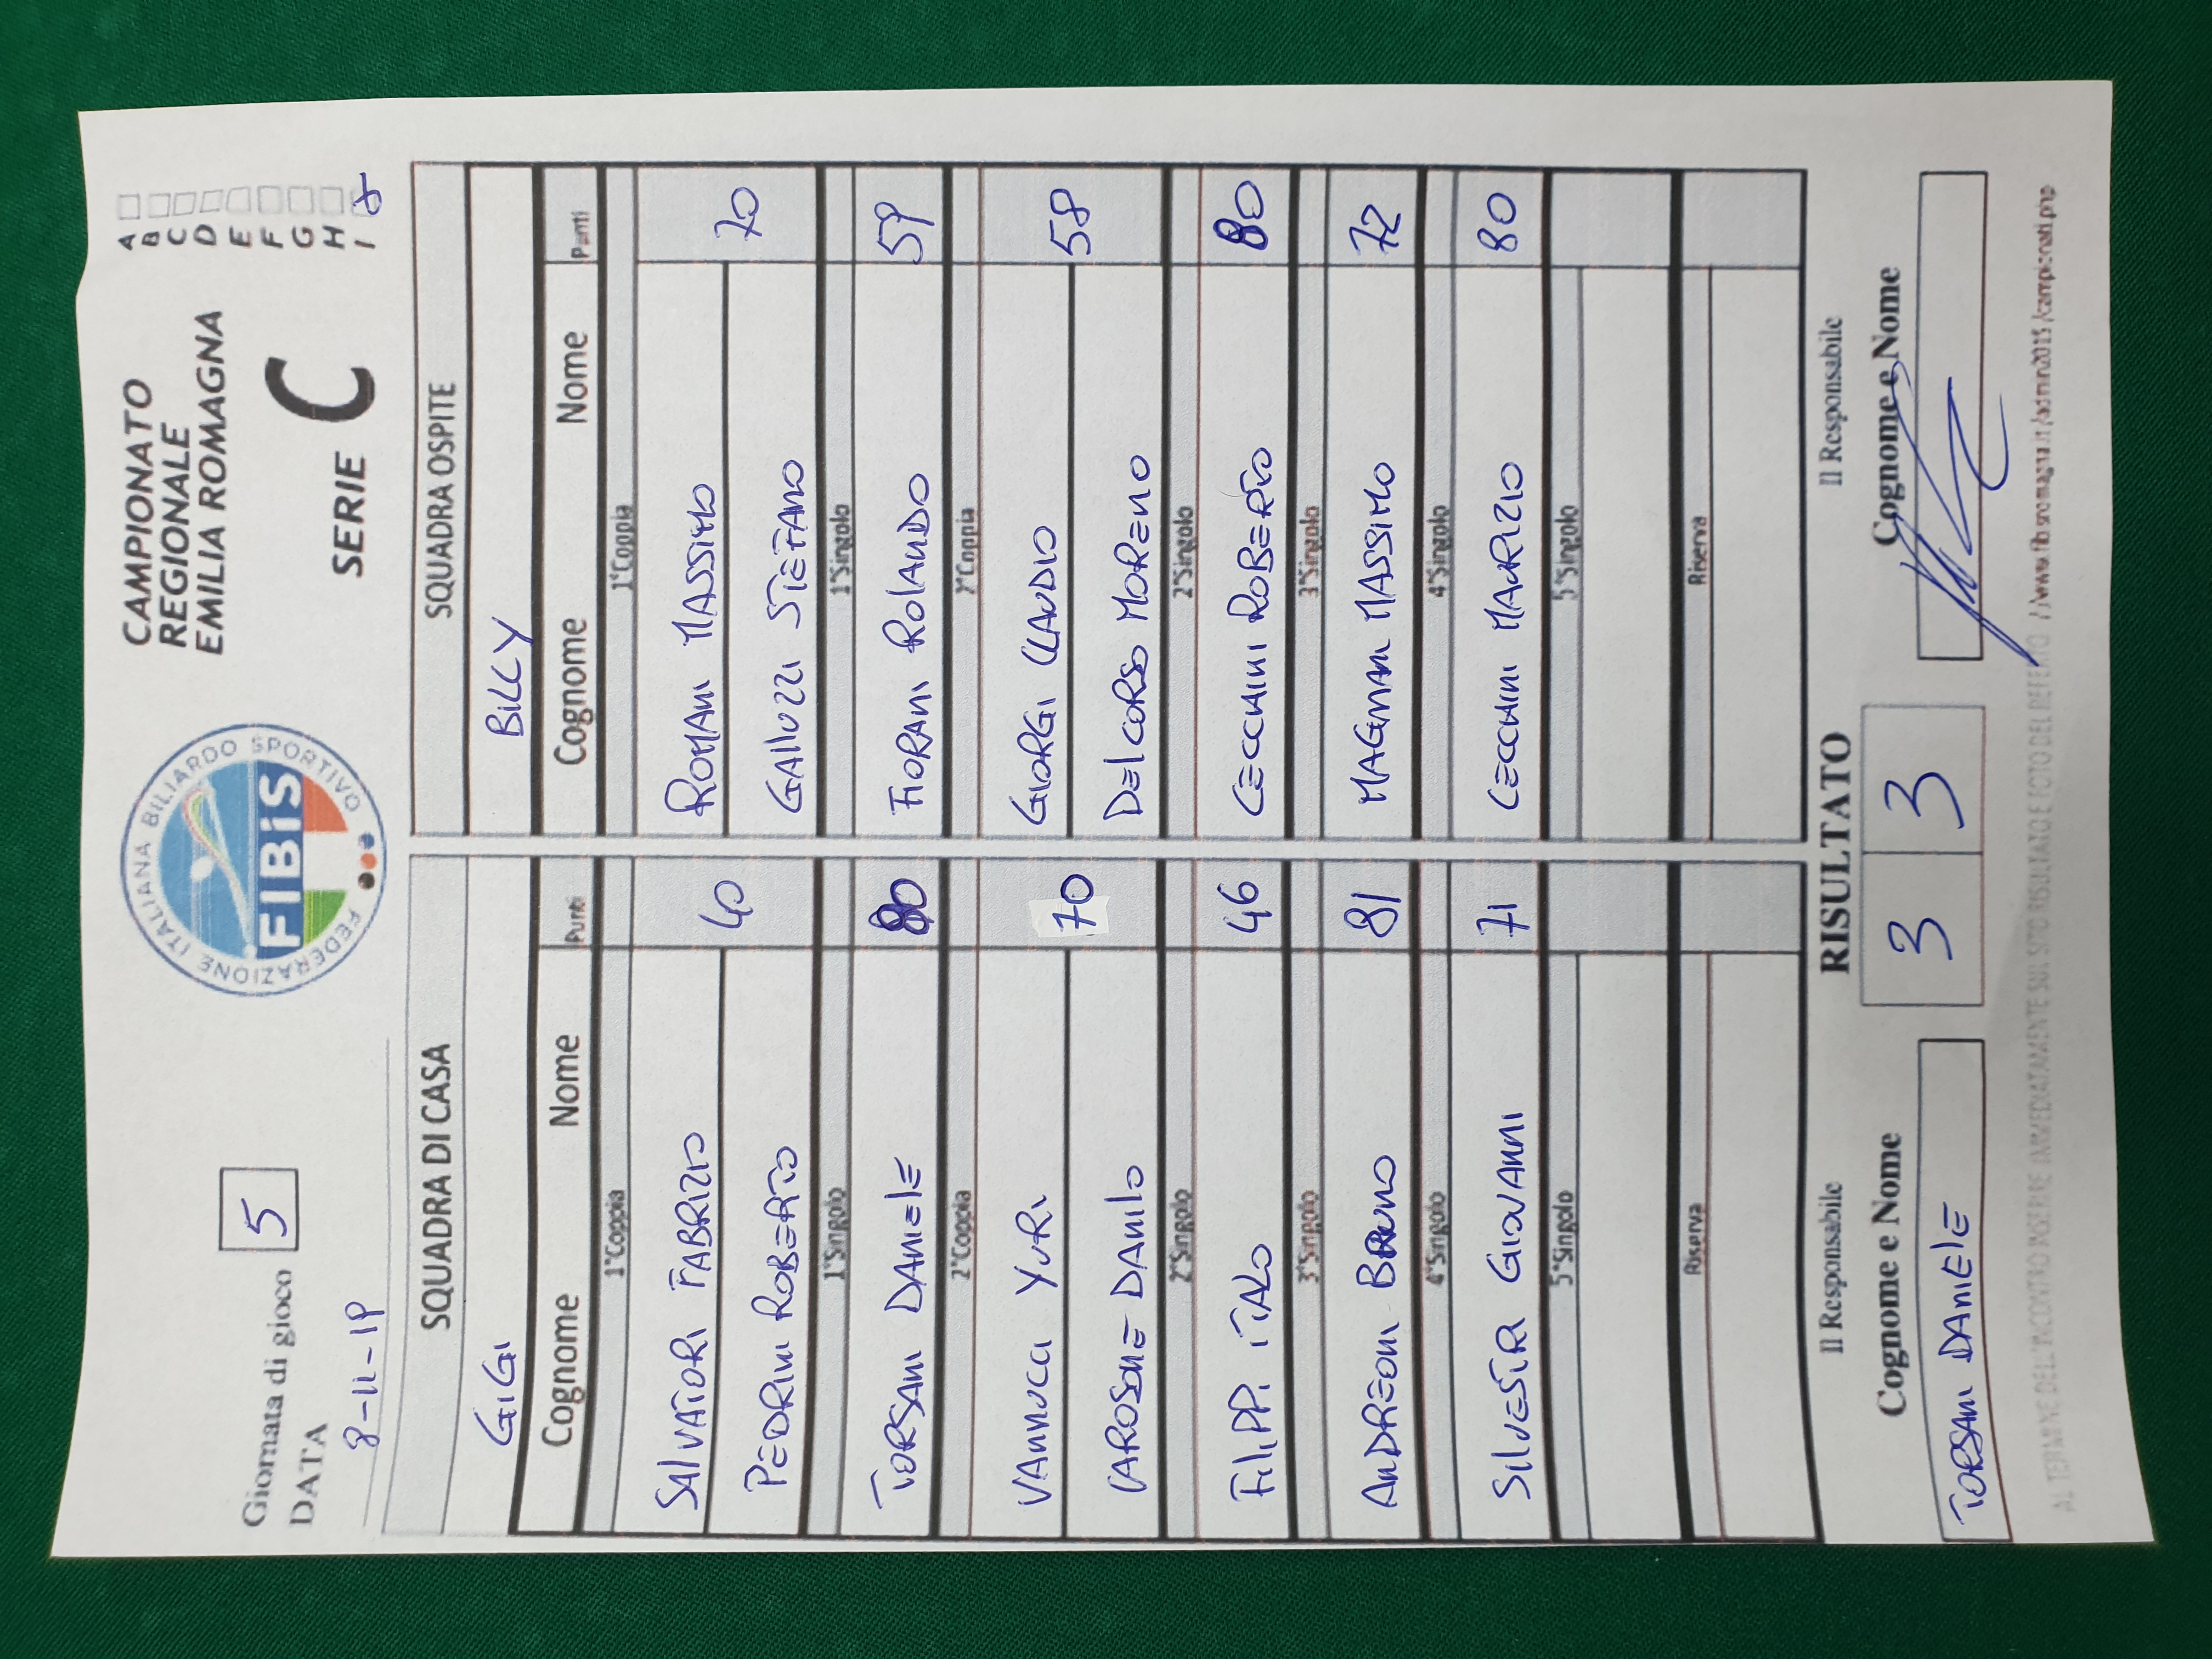 Giornata di gioco 5
DATA
8-11-19
FEDERAZIONE ITALIANA BILIARDO SPORTIVO
FIBiS
CAMPIONATO
REGIONALE
EMILIA ROMAGNA
SERIE C
A
B
C
D
E
F
G
H
I
SQUADRA DI CASA SQUADRA OSPITE
GIGI BILLY
Cognome Nome Punti Cognome Nome Punti
1°Coppia 1°Coppia
SALVATORI FABRIZIO 40 ROMANI MASSIMO 70
PEDRINI ROBERTO GALLUZZI STEFANO
1°Singolo 1°Singolo
TORSANI DANIELE 80 FIORANI ROLANDO 59
2°Coppia 2°Coppia
VANNUCCI YURI 70 GIORGI CLAUDIO 58
CAROSONE DANILO DELCORSO MORENO
2°Singolo 2°Singolo
FILIPPI ITALO 46 CECCHINI ROBERTO 80
3°Singolo 3°Singolo
ANDREONI BRUNO 81 MAGNANI MASSIMO 72
4°Singolo 4°Singolo
SILVESTRI GIOVANNI 71 CECCHINI MAURIZIO 80
5°Singolo 5°Singolo
Riserva Riserva
Il Responsabile RISULTATO Il Responsabile
Cognome e Nome 3 3 Cognome e Nome
TORSANI DANIELE
AL TERMINE DELL'INCONTRO INSERIRE IMMEDIATAMENTE SUL SITO RISULTATO E FOTO DEL REFERTO